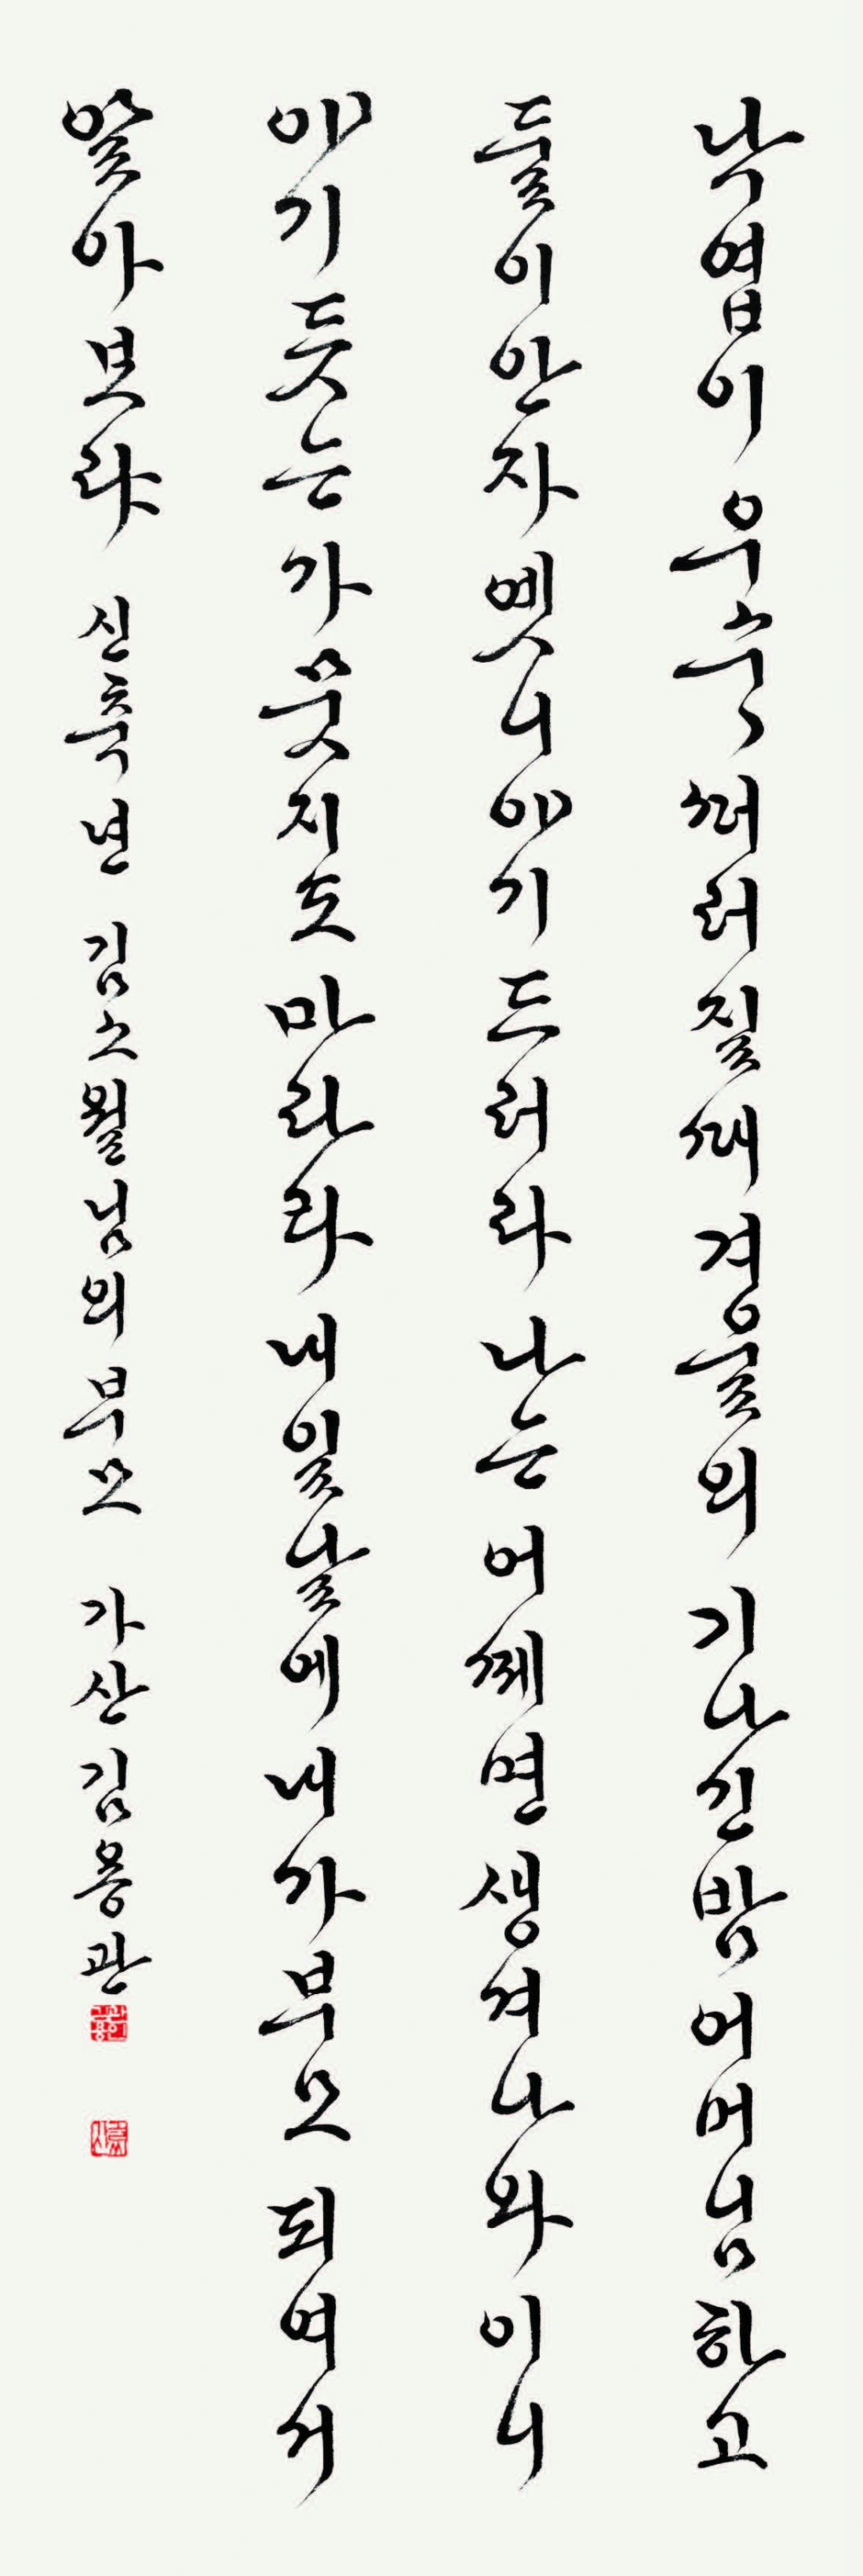 낙엽이 우수〻 ᄯᅥ러질ᄯᅢ 겨울의 기나긴밤 어머님하고
둘이 안자 옛니야기 드러라 나는 어ᄶᅦ면 생겨나와 이니
야기 듯는가 뭇지도 마라라 내일날에 내가 부모 되여서
알아보랴 신축년 김소월님의 부모 가산 김용관